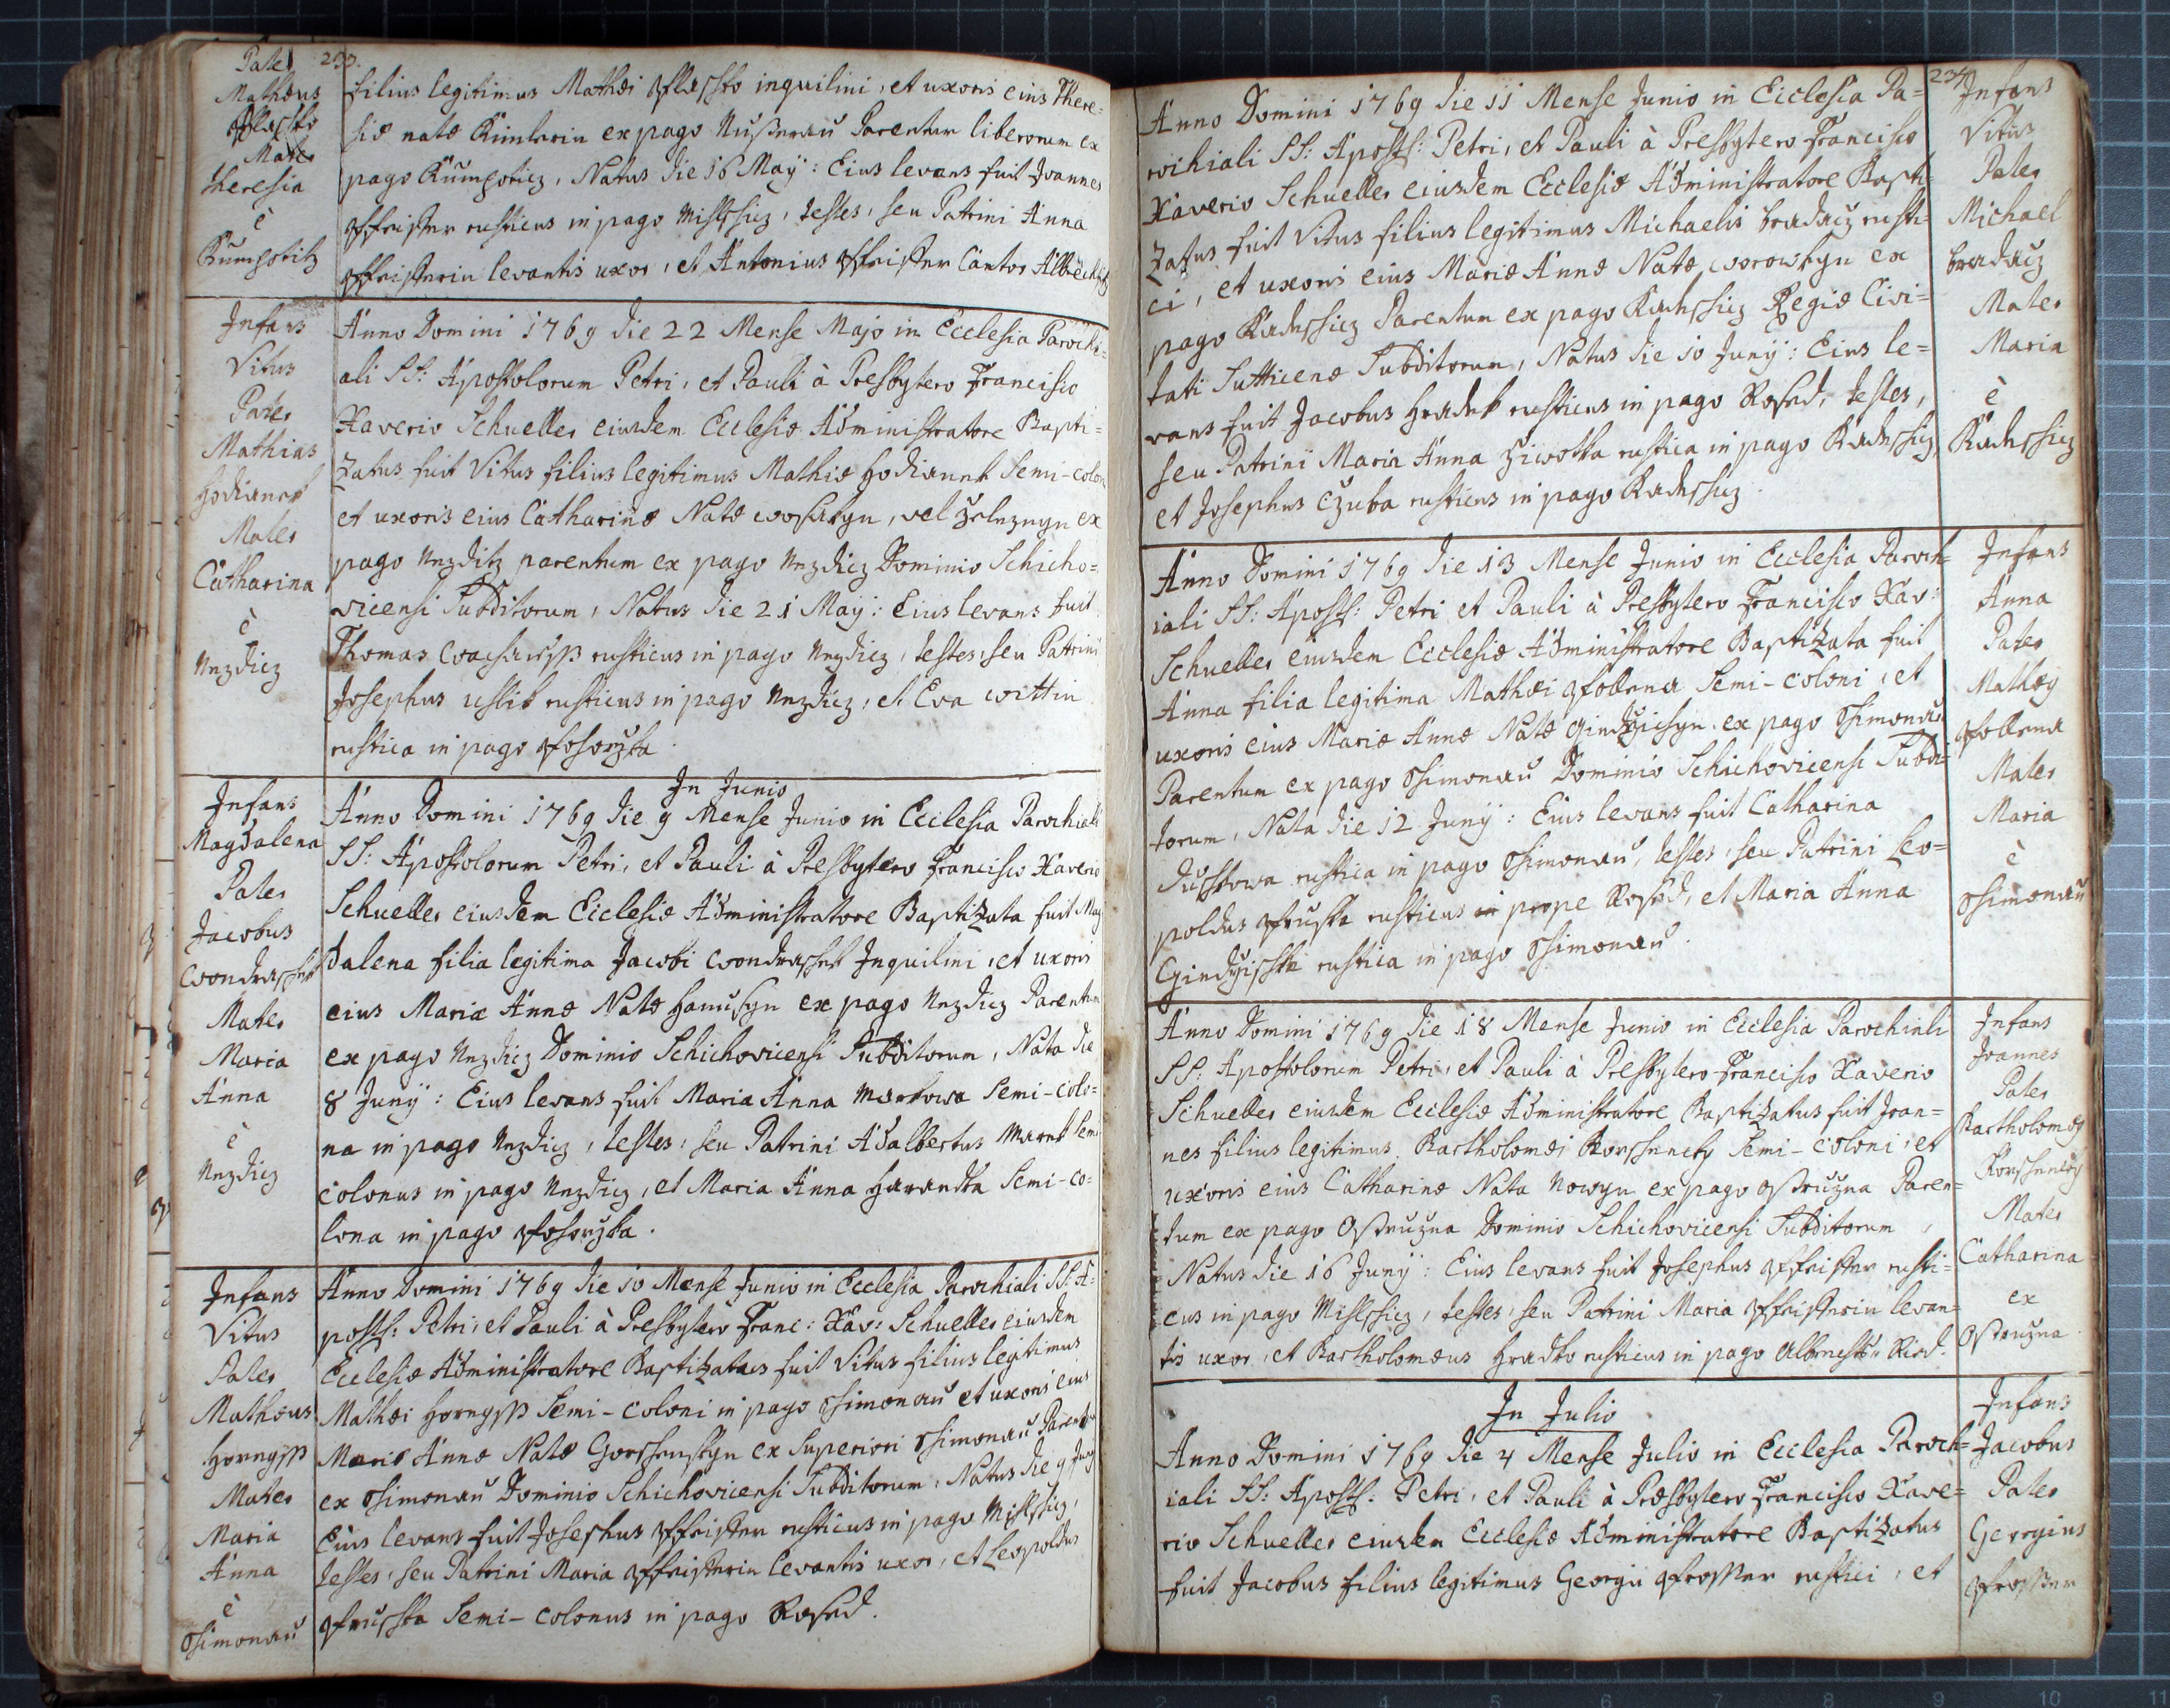 233.
Pater
Mathæus
Mater
theresia
è
Kumpotitz
filius legitimus Mathæi inquilini, et uxoris eius There=
siæ natæ ex pago Parentum liberorum ex
pago Kumpoticz, Natus die 16 Maÿ: Eius levans fuit Joannes
rusticus in pago testes, seu Patrini Anna
levantis uxor, et Antonius Cantor
Infans
Vitus
Pater
Mathias
Hodianek
Mater
Catharina
è
Nezdicz
Anno Domini 1769 die 22 Mense Majo in Ecclesia Parochi=
ali SS: Apostolorum Petri, et Pauli à Presbytero Francisco
Xaverio Schueller eiusdem Ecclesiæ Administratore Bapti=
zatus fuit Vitus filius legitimus Mathiæ Hodianek Semi-coloni
et uxoris eius Catharinæ Natæ vel ex
pago Nezditz parentum ex pago Nezdicz Dominio Schicho=
vicensi Subditorum, Natus die 21 Maÿ: Eius levans fuit
Thomas rusticus in pago Nezdicz, testes, seu Patrini
Josephus rusticus in pago Nezdicz, et Eva
rustica in pago
In Junio
Infans
Magdalena
Pater
Jacobus
Wondrasschek
Mater
Maria
Anna
è
Nezdicz
Anno Domini 1769 die 9 Mense Junio in Ecclesia Parochiali
SS: Apostolorum Petri, et Pauli à Presbytero Francisco Xaverio
Schueller eiusdem Ecclesiæ Administratore Baptizata fuit Mag
dalena filia legitima Jacobi Wondrasschek Inquilini, et uxoris
eius Mariæ Annæ Natæ Hanusgn ex pago Nezdicz Parentum
ex pago Nezdicz Dominio Schichovicensi Subditorum, Nata die
8 Junÿ: Eius levans fuit Maria Anna Markowa Semi-colo=
na in pago Nezdicz, testes, seu Patrini Adalbertus Marek Semi
colonus in pago Nezdicz, et Maria Anna Harandka Semi-co=
lona in pago
Infans
Vitus
Pater
Mathæus
Horngss
Mater
Maria
Anna
è
Ohimonau
Anno Domini 1769 die 10 Mense Junio in Ecclesia Parochiali SS: A=
posts: Petri, et Pauli à Presbytero Franc: Xav: Schueller eiusdem
Ecclesiæ Administratore Baptizatus fuit Vitus filius legitimus
Mathæi Horngss Semi-coloni in pago Ohimonau et uxoris eius
Mariæ Annæ Natæ ex Superiori Ohimonau Parentum
ex Ohimonau Dominio Schichovicensi Subditorum, Natus die 9 Junÿ
Eius levans fuit Josephus rusticus in pago
testes, seu Patrini Maria levantis uxor, et Leopoldus
Semi-colonus in pago
234
Anno Domini 1769 die 11 Mense Junio in Ecclesia Pa=
rochiali SS: Aposts: Petri, et Pauli à Presbytero Francisco
Xaverio Schueller eiusdem Ecclesiæ Administratore Bapti=
zatus fuit Vitus filius legitimus Michaelis Bradacz rusti=
ci, et uxoris eius Mariæ Annæ Natæ Worowkgn ex
pago Parentum ex pago Regiæ Civi=
tati Sutticenæ Subditorum, Natus die 10 Junÿ: Eius le=
vans fuit Jacobus Hradek rusticus in pago testes,
seu Patrini Maria Anna Ziwotka rustica in pago
et Josephus Czuba rusticus in pago
Infans
Vitus
Pater
Michael
Bradacz
Mater
Maria
è
Anno Domini 1769 die 13 Mense Junio in Ecclesia Paroch=
iali SS: Aposts: Petri et Pauli à Presbytero Francisco Xav:
Schueller eiusdem Ecclesiæ Administratore Baptizata fuit
Anna filia legitima Mathæi Semi-coloni, et
uxoris eius Mariæ Annæ Natæ ex pago Ohimonau
Parentum ex pago Ohimonau Dominio Schichovicensi Subdi=
torum, Nata die 12 Junÿ: Eius levans fuit Catharina
rustica in pago Ohimonau, testes, seu Patrini Leo=
poldus rusticus prope et Maria Anna
rustica in pago Ohimonau.
Infans
Anna
Pater
Mathæy
Mater
Maria
è
Ohimonau
Anno Domini 1769 die 18 Mense Junio in Ecclesia Parochiali
SS: Apostolorum Petri, et Pauli à Presbytero Francisco Xaverio
Schueller eiusdem Ecclesiæ Administratore Baptizatus fuit Joan=
nes filius legitimus Bartholomæi Semi-coloni, et
uxoris eius Catharinæ Nata Nowgn ex pago Ostružna Paren=
tum ex pago Ostružna Dominio Schichovicensi Subditorum,
Natus die 16 Junÿ: Eius levans fuit Josephus rusti=
cus in pago testes, seu Patrini Maria levan=
tis uxor, et Bartholomæus Hradko rusticus in pago
Infans
Joannes
Pater
Bartholomæy
Mater
Catharina
ex
Ostružna
In Julio
Anno Domini 1769 die 4 Mense Julio in Ecclesia Paroch=
iali SS: Aposts: Petri, et Pauli à Præsbytero Francisco Xave=
rio Schueller eiusdem Ecclesiæ Administratore Baptizatus
fuit Jacobus filius legitimus Georgii rustici, et
Infans
Jacobus
Pater
Georgius